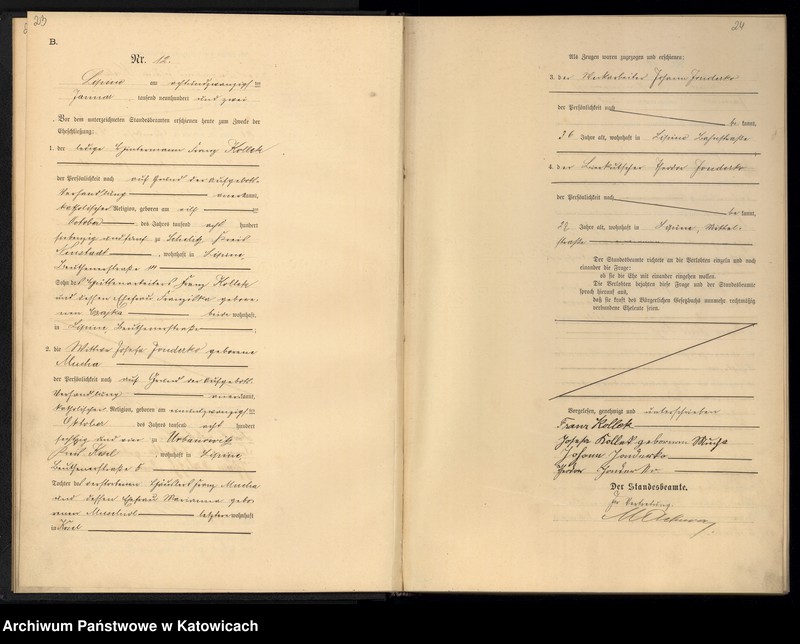 23
B.
Nr. 12.
Lipine achtundzwanzigsten
Januar tausend neunhundert und zwei
Vor dem unterzeichneten Standesbeamten erschienen heute zum Zwecke der
Eheschließung:
1. der ledige Franz Kollek
der Persönlichkeit nach auf Grund der Aufgebots-
Verhandlung anerkannt,
katholischer Religion, geboren am
Oktober des Jahres tausend acht hundert
siebenzig und zu Kreis
Neustadt, wohnhaft in Lipine,
Beuthenerstraße
Sohn des Hüttenarbeiters Franz Kollek
und dessen Ehefrau Franziska gebore-
nen Czajka beide wohnhaft
in Lipine Beuthenerstraße;
2. die Witwe Josefa Jonderko geborene
Mucha
der Persönlichkeit nach auf Grund der Aufgebots-
Verhandlung anerkannt,
katholischer Religion, geboren am einundzwanzigsten
des Jahres tausend acht hundert
sechzig und zu Urbanowitz
Kreis Kosel, wohnhaft in Lipine,
Beuthenerstraße
Tochter des verstorbenen Häuslers Franz Mucha
und dessen Ehefrau Marianna gebo-
renen letzten wohnhaft
in Kosel
24
Als Zeugen waren zugezogen und erschienen:
3. der Johann Jonderko
der Persönlichkeit nach
be kannt,
36 Jahre alt, wohnhaft in Lipine Bahnstraße
4. der Theodor Jonderko
der Persönlichkeit nach
be kannt,
27 Jahre alt, wohnhaft in Lipine, Mittel-
straße
Der Standesbeamte richtete an die Verlobten einzeln und nach
einander die Frage:
ob sie die Ehe mit einander eingehen wollen.
Die Verlobten bejahten diese Frage und der Standesbeamte
sprach hierauf aus,
daß sie kraft des Bürgerlichen Gesetzbuchs nunmehr rechtmäßig
verbundene Eheleute seien.
Vorgelesen, genehmigt und unterschrieben
Franz Kollek
Josefa Kollek geborenen Mucha
Johann Jonderko
Theodor Jonderko
Der Standesbeamte.
In Vertretung.
Archiwum Państwowe w Katowicach